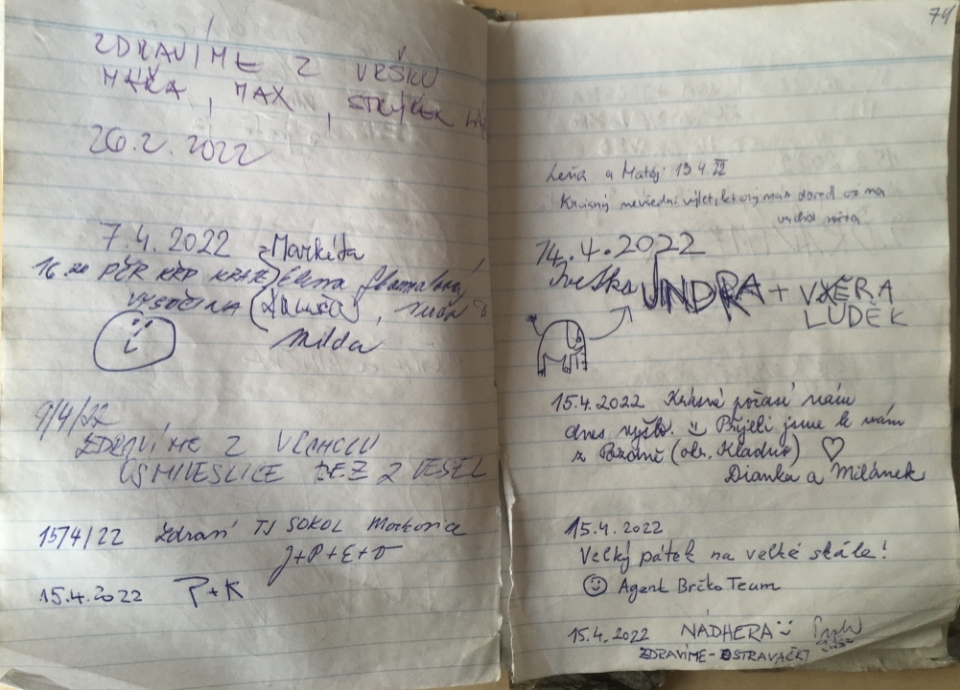 ZDRAVÍME Z VRŠKU
MÁŘA, MAX, STRÝKEK
26.2.2022
7.4.2022 Markéta
16.20 PČR KŘP KRAJE Elena
VYSOČINA
Milda
9/4/22
ZDRAVÍME Z VRCHOLU
OSMIVESLICE BEZ 2 VESEL
15/4/22 Zdraví TJ SOKOL Morkovice
J+P+E+D
15.4.2022 P+K
74
Leňa a Matěj 13 4. 22
Krásný nevšední výlet, který nás dovedl až na
vrchol světa
14.4.2022
Ivetka JINDRA + VĚRA
LUDĚK
15.4.2022 Krásné počasí nám
dnes vyšlo. Přijeli jsme k vám
z (okr. Kladno)
Dianka a Milánek
15.4.2022
Velký pátek na velké skále!
Agent Brčko Team
15.4.2022 NÁDHERA
ZDRAVÍME - OSTRAVAČKY